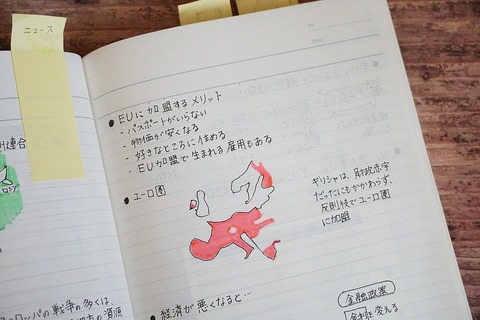 ニュース
州連合
ロシア
ヨーロッパの戦争の多くは、
の資源
● EUに加盟するメリット
- パスポートがいらない
- 物価が安くなる
- 好きなところに住める
- EU加盟で生まれる雇用もある
● ユーロ圏
ギリシャは、財政赤字
だったにもかかわらず、
反則技でユーロ圏
に加盟
● 経済が悪くなると…
金融政策
金利を変える